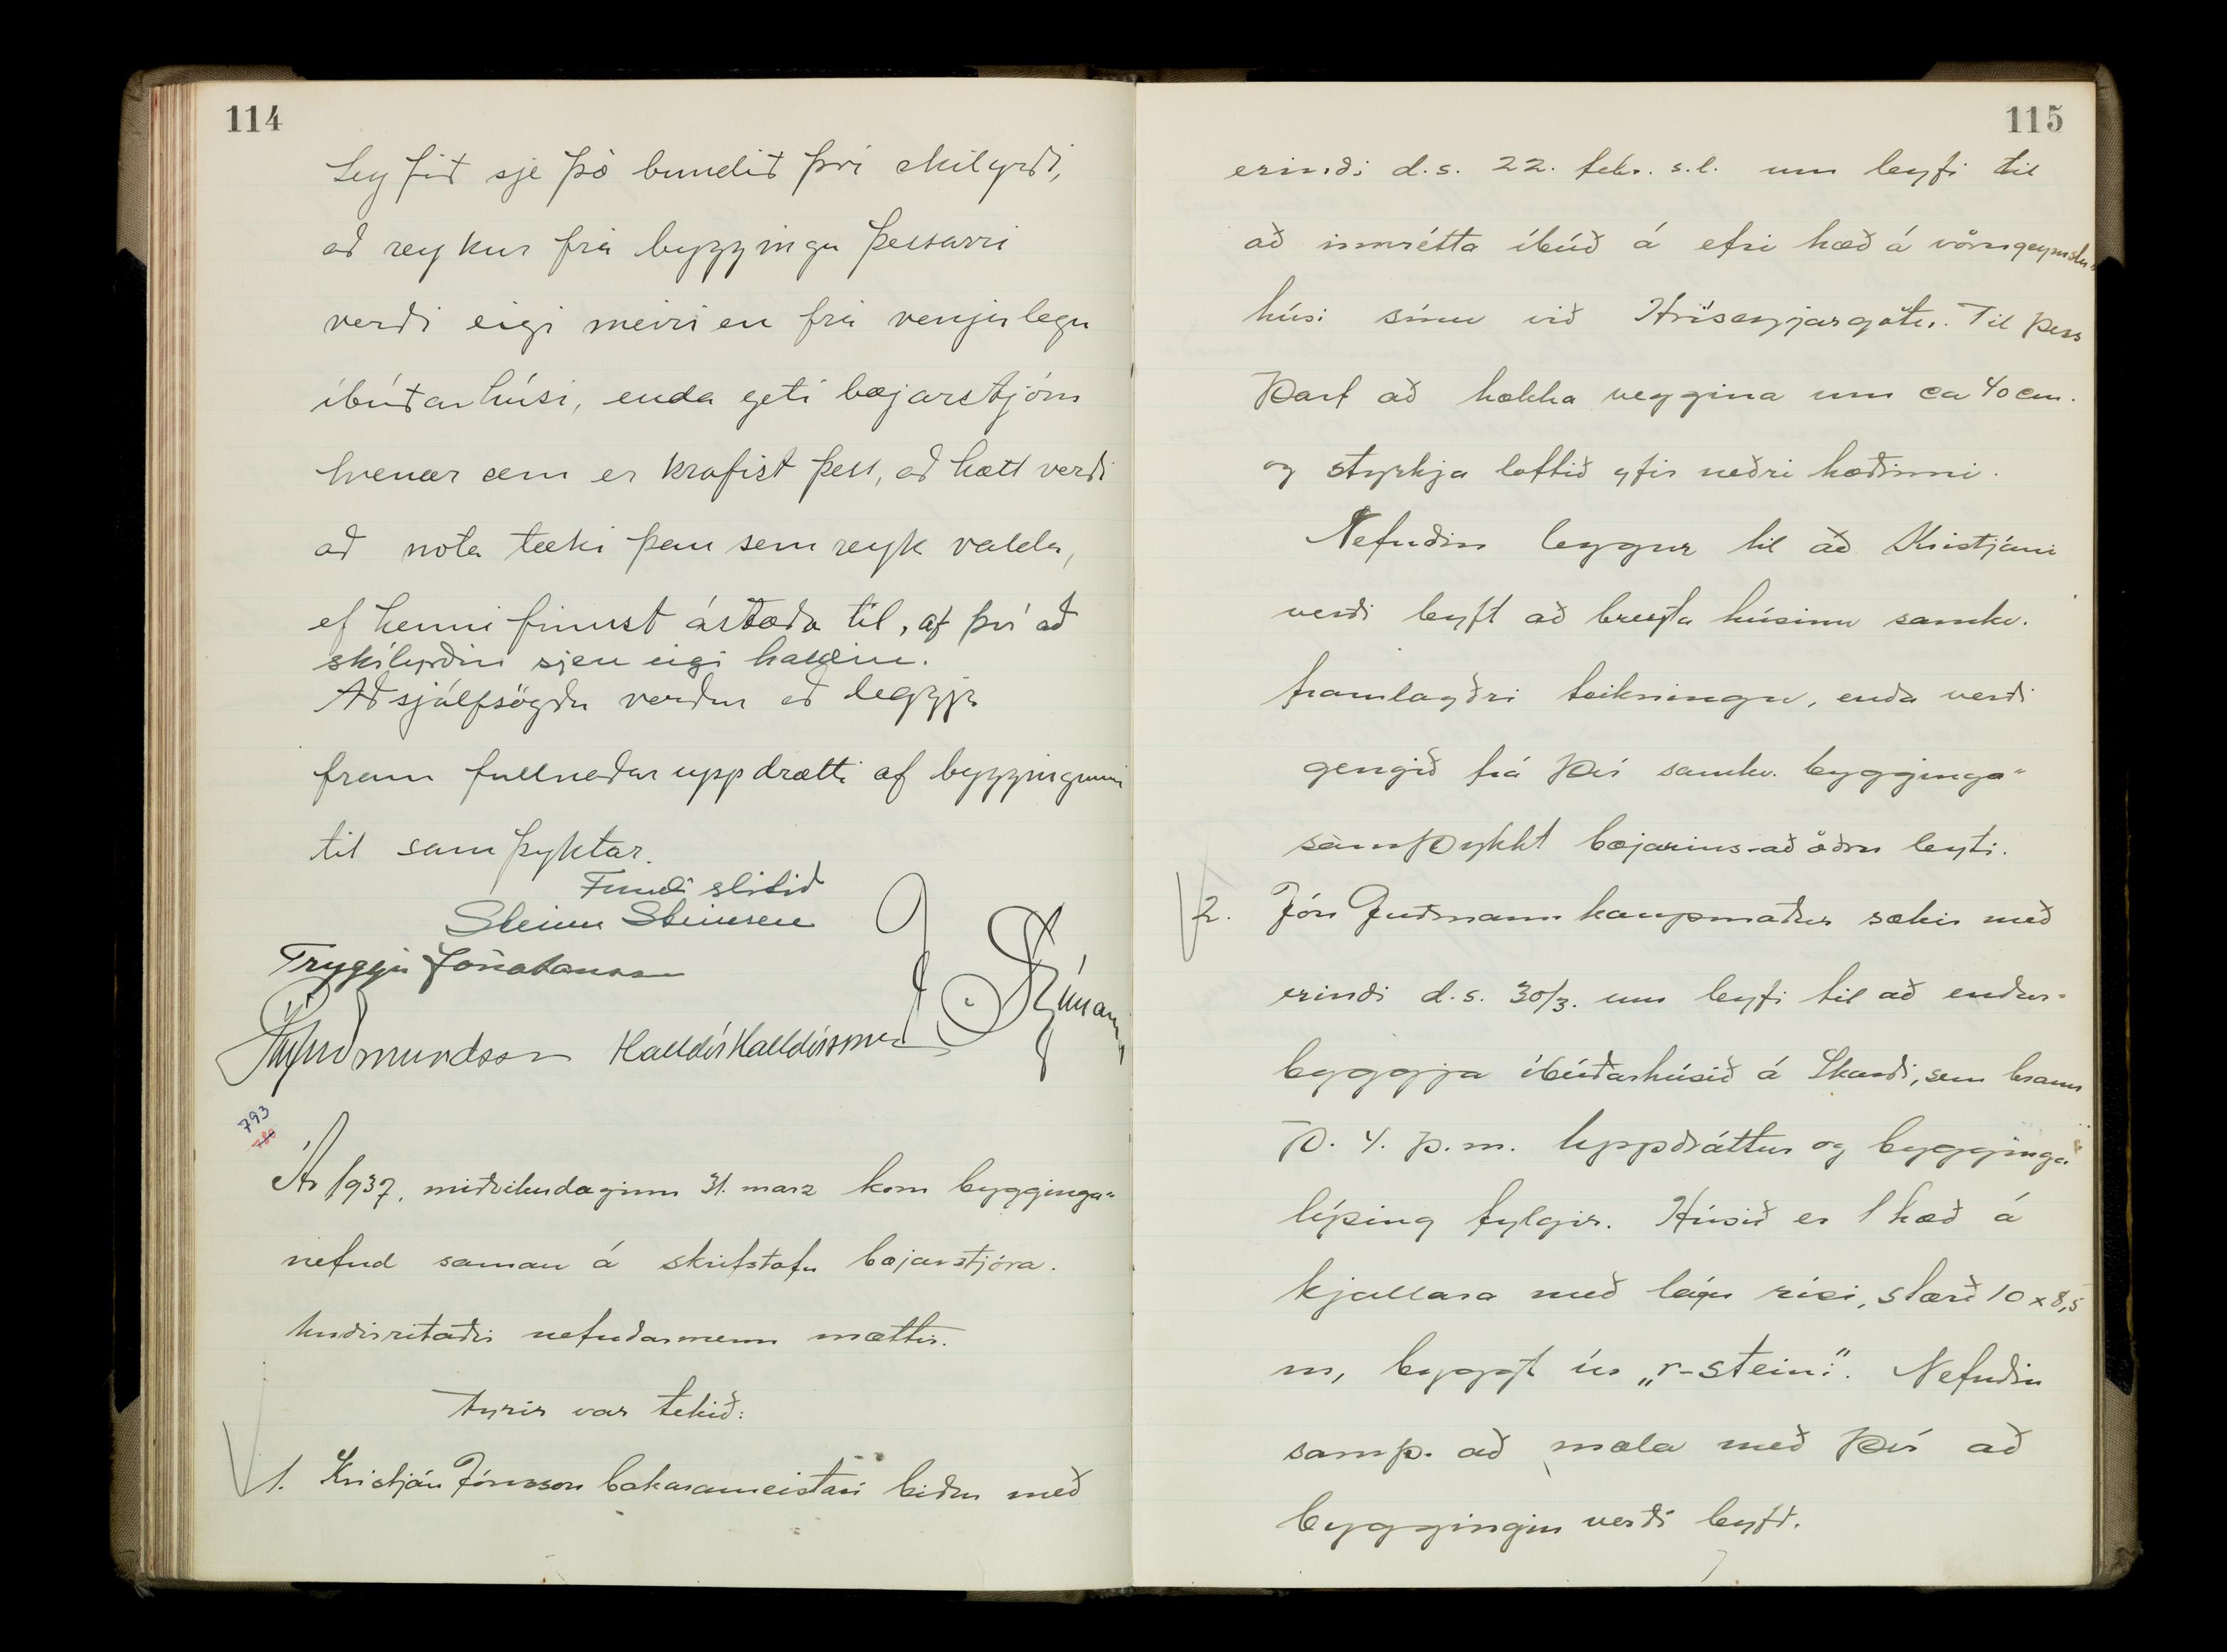 114
Leyfið sje þó bundið því skilyrði,
að reykur frá byggingu þessarri
verði eigi meiri en frá venjulegu
íbúðarhúsi, enda geti bæjarstjórn
hvenær sem er krafist þess, að hætt verði
að nota tæki þau sem reyk valda,
ef henni finnst ástæða til, af því að
skilyrðin sjeu eigi haldin.
Að sjálfsögðu verður að leggja
fram fullnaðar uppdrætti af byggingunni
til samþyktar.
Fundi slitið
Steinn Steinsen
Tryggvi Jónatansson
Halldór Halldórsson
793
780
Ár 1937, miðvikudaginn 31. marz kom bygginga-
nefnd saman á skrifstofu bæjarstjóra.
Undirritaðir nefndarmenn mættir.
Fyrir var tekið:
1. Kristján Jónsson bakarameistari biður með
115
erindi d.s. 22. febr. s.l. um leyfi til
að innrétta íbúð á efri hæð á vörugeymslu-
húsi sínu við Hríseyjargötu. Til þess
þarf að hækka veggina um ca 40 cm.
og styrkja loftið yfir neðri hæðinni.
Nefndin leggur til að Kristjáni
verði leyft að breyta húsinu samkv.
framlagðri teikningu, enda verði
gengið frá því samkv. bygginga-
samþykkt bæjarins að öðru leyti.
2. Jón Guðmann kaupmaður sækir með
erindi d.s. 30/3. um leyfi til að endur-
byggja íbúðarhúsið á Skarði, sem brann
þ. 4. þ.m. Uppdráttur og bygginga-
lýsing fylgir. Húsið er 1 hæð á
kjallara með lágu risi, stærð 10 x 8,5
m, byggt úr „r-steini". Nefndin
samþ. að mæla með því að
byggingin verði leyfð.